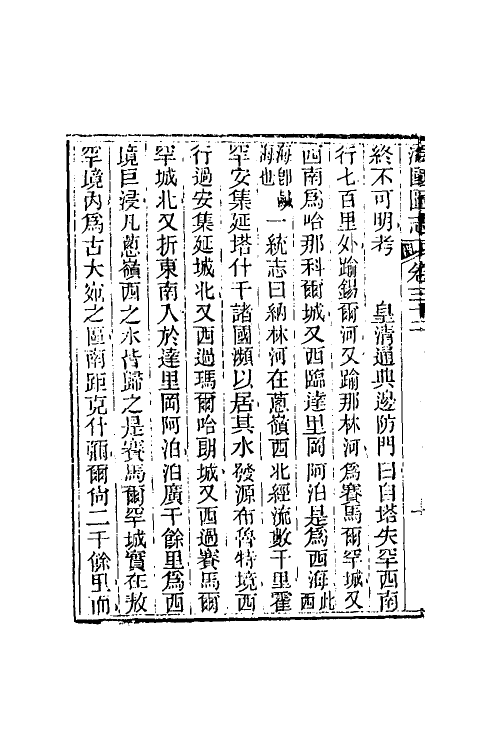 海國圖志 卷三十二
終不可明考　皇清通典邊防門曰自塔失罕西南
行七百里外踰錫爾河又踰那林河爲賽馬爾罕城又
西南爲哈那科爾城又西臨達里岡阿泊是爲西海此西
海卽鹹海也一統志曰納林河在蔥嶺西北經流數千里霍
罕安集延塔什干諸國瀕以居其水發源布魯特境西
行過安集延城北又西過瑪爾哈朗城又西過賽馬爾
罕城北又折東南入於達里岡阿泊泊廣千餘里爲西
境巨浸凡蔥嶺西之水皆歸之是賽馬爾罕城實在敖
罕境內爲古大宛之區南距克什彌爾尙二千餘里而